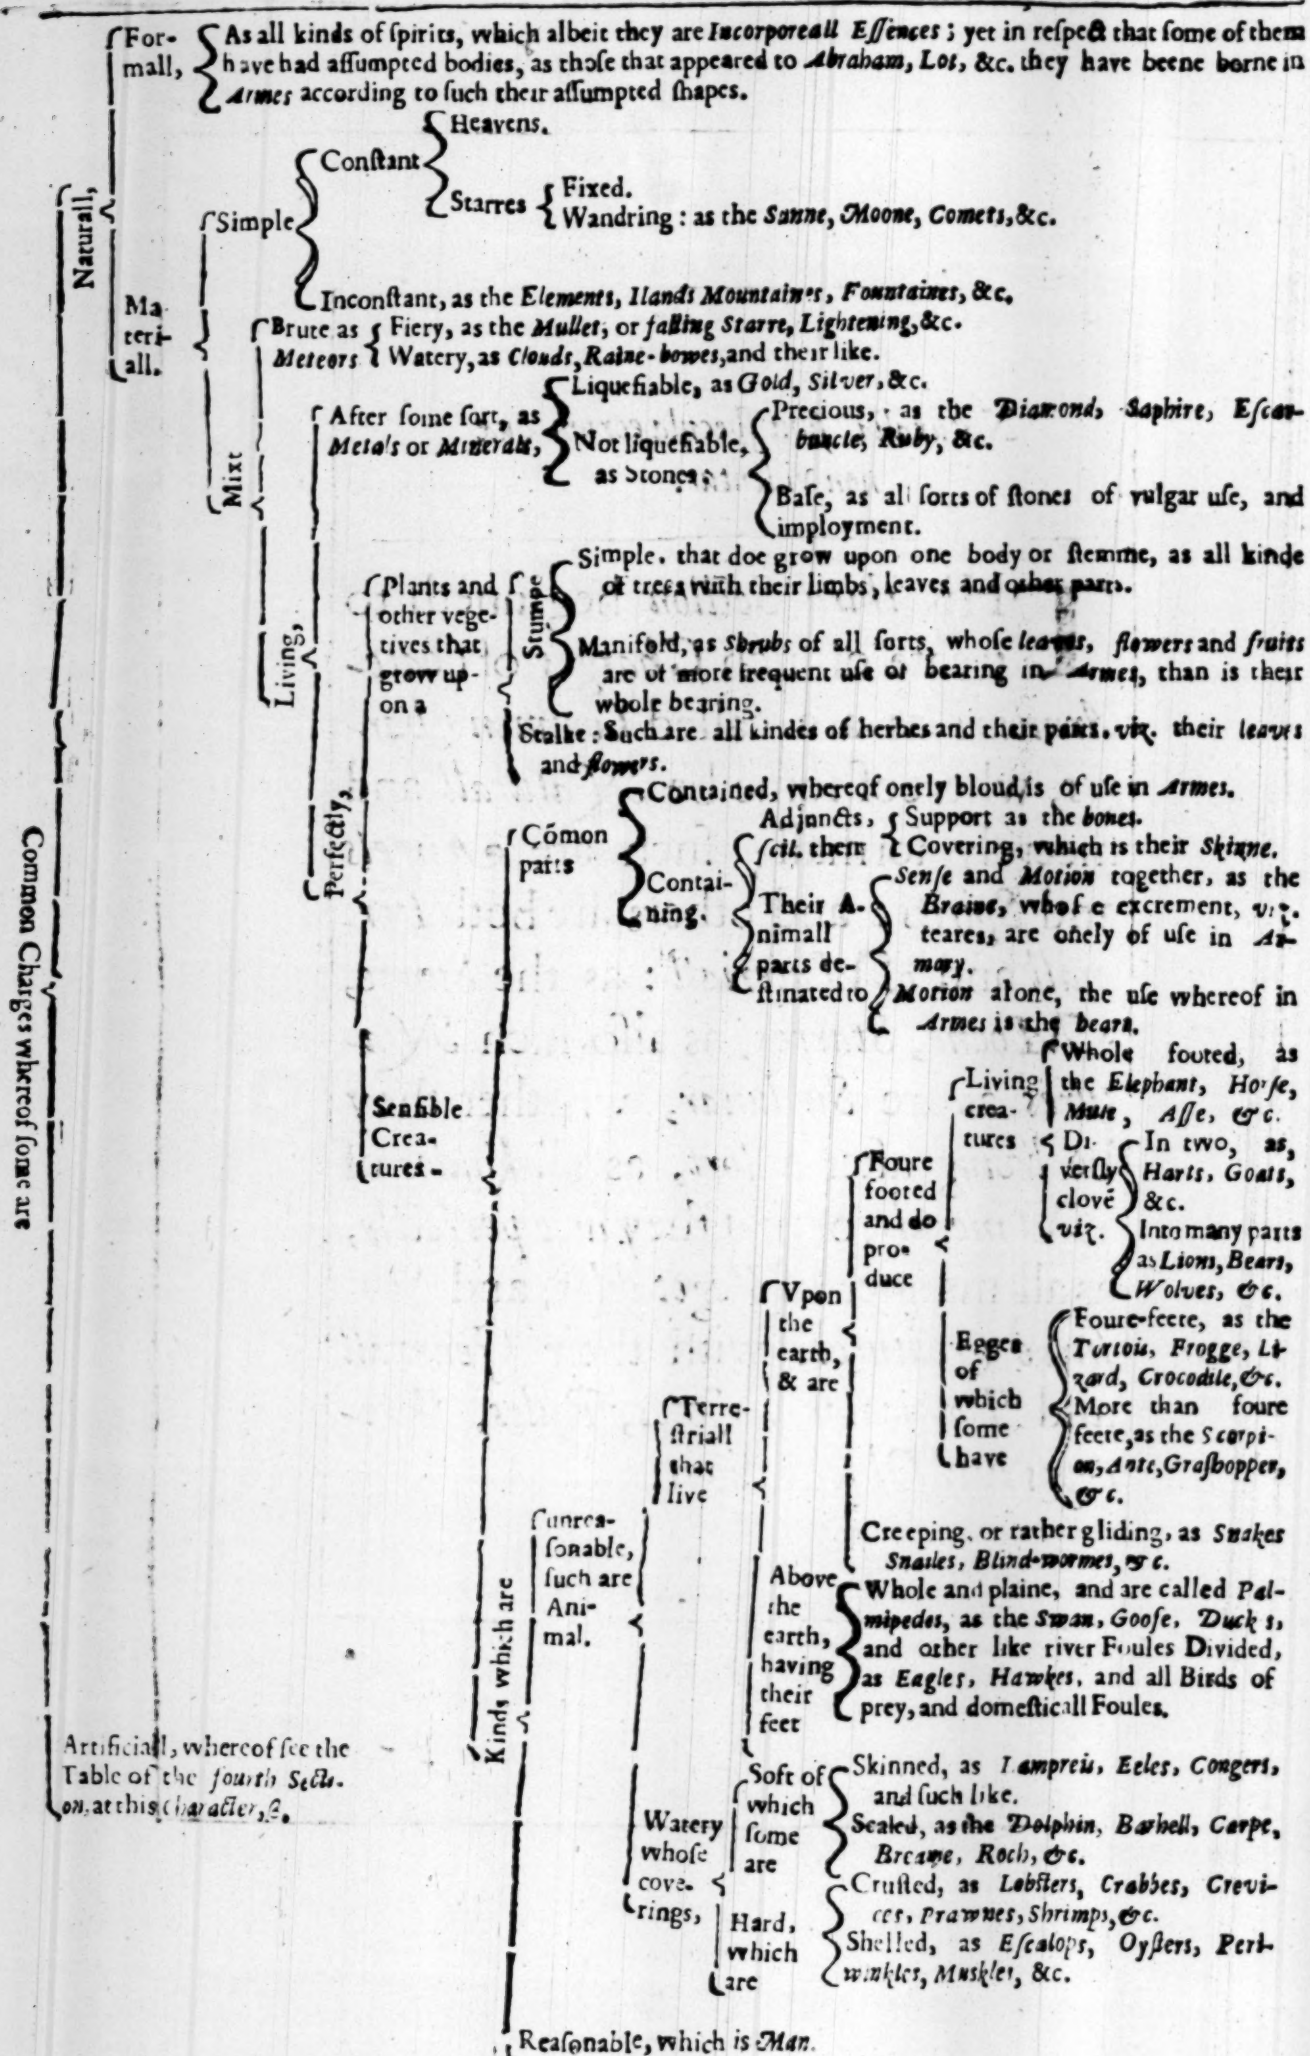 Common Charges whereof ſome are
Naturall,
For-
mall,
As all kinds of ſpirits, which albeit they are Incorporeall Eſſences; yet in reſpect that ſome of them
have had aſſumpted bodies, as thoſe that appeared to Abraham, Lot, &c. they have beene borne in
Armes according to ſuch their aſſumpted ſhapes.
Ma
teri-
all.
Simple
Conſtant
Heavens.
Starres
Fixed.
Wandring: as the Sunne, Moone, Comets, &c.
Inconſtant, as the Elements, Ilands Mountaines, Fountaines, &c.
Mixt
Brute as
Meteors
Fiery, as the Mullet, or falling Starre, Lightening, &c.
Watery, as Clouds, Raine-bowes, and their like.
Living,
After ſome ſort, as
Metals or Minerals,
Liquefiable, as Gold, Silver, &c.
Not liquefiable,
as Stones:
Precious, as the Diamond, Saphire, Eſcar-
buncle, Ruby, &c.
Baſe, as all ſorts of ſtones of vulgar uſe, and
imployment.
Perfectly,
Plants and
other vege-
tives that
grow up-
on a
Stumpe
Simple. that doe grow upon one body or ſtemme, as all kinde
of trees with their limbs, leaves and other parts.
Manifold, as Shrubs of all ſorts, whoſe leaves, flowers and fruits
are of more frequent uſe of bearing in Armes, than is their
whole bearing.
Stalke: Such are all kindes of herbes and their parts. viz. their leaves
and flowers.
Senſible
Crea-
tures
Cōmon
parts
Contained, whereof onely bloud is of uſe in Armes.
Contai-
ning.
Adjuncts,
ſcil. their
Support as the bones.
Covering, which is their Skinne.
Their A-
nimall
parts de-
ſtinated to
Senſe and Motion together, as the
Braine, whoſe excrement, viz.
teares, are onely of uſe in Ar-
mory.
Motion alone, the uſe whereof in
Armes is the heart.
Kinds which are
unrea-
ſonable,
ſuch are
Ani-
mal.
Terre-
ſtriall
that
live
Vpon
the
earth,
& are
Foure
footed
and do
pro-
duce
Living
crea-
tures
Whole footed, as
the Elephant, Horſe,
Mule, Aſſe, &c.
Di-
verſly
clovē
viz.
In two, as,
Harts, Goats,
&c.
Into many parts
as Lions, Bears,
Wolves, &c.
Egges
of
which
ſome
have
Foure-feete, as the
Tortois, Frogge, Li-
zard, Crocodile, &c.
More than foure
feete, as the Scorpi-
on, Ante, Graſhopper,
&c.
Creeping, or rather gliding, as Snakes
Snailes, Blind-wormes, &c.
Above
the
earth,
having
their
feet
Whole and plaine, and are called Pal-
mipedes, as the Swan, Gooſe, Ducks,
and other like river Foules Divided,
as Eagles, Hawkes, and all Birds of
prey, and domeſticall Foules.
Watery
whoſe
cove-
rings,
Soft of
which
ſome
are
Skinned, as Lampreis, Eeles, Congers,
and ſuch like.
Scaled, as the Dolphin, Barbell, Carpe,
Breame, Roch, &c.
Hard,
which
are
Cruſted, as Lobſters, Crabbes, Crevi-
ces, Prawnes, Shrimps, &c.
Shelled, as Eſcalops, Oyſters, Peri-
winkles, Muskles, &c.
Reaſonable, which is Man.
Artificiall, whereof ſee the
Table of the fourth Secti-
on, at this Character,